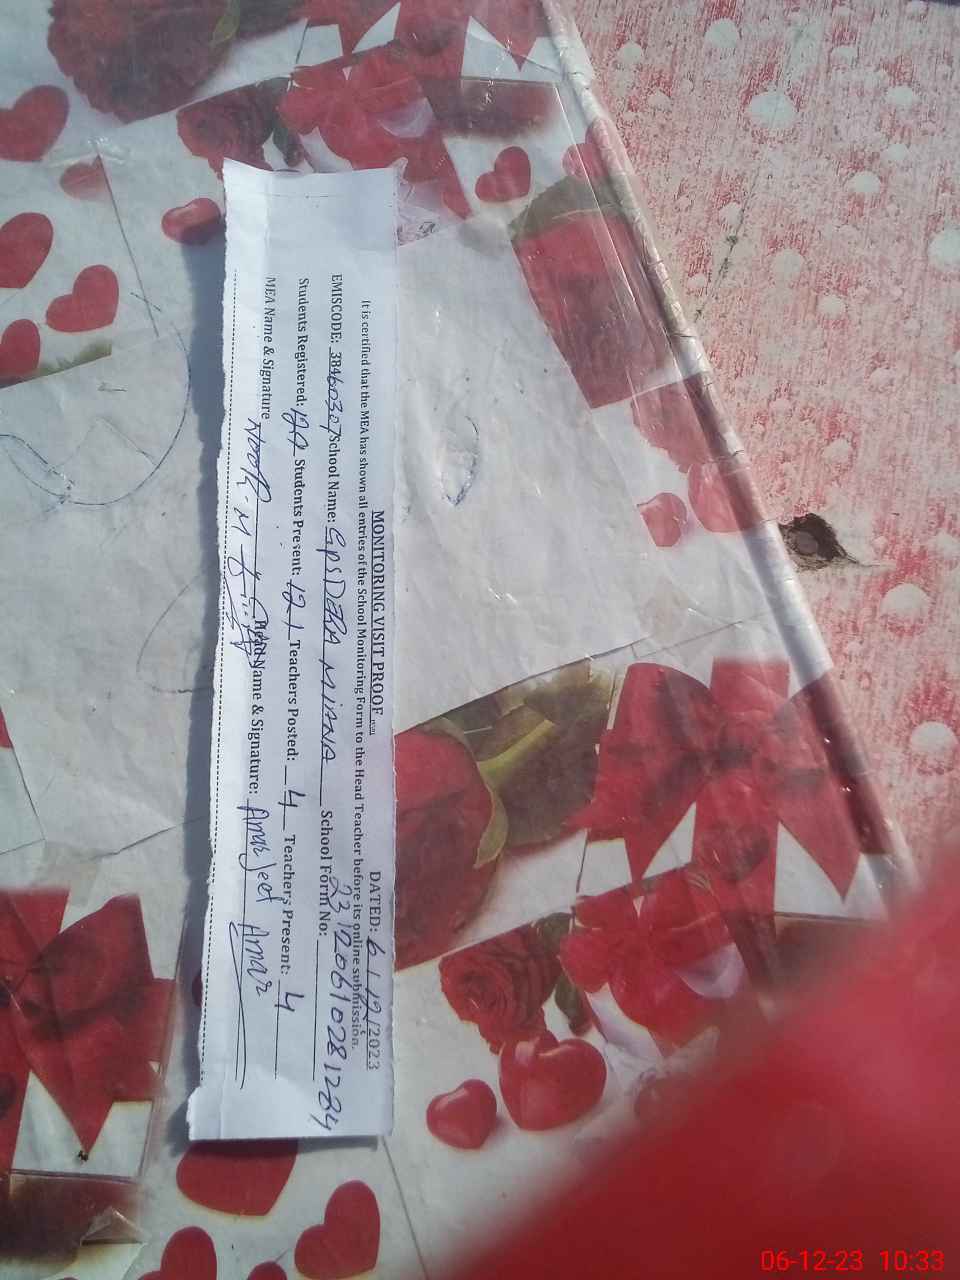 MONITORING VISIT PROOF
DATED: 6/12/2023
It is certified that the MEA has shown all entries of the School Monitoring Form to the Head Teacher before its online submission.
EMISCODE: 38460307 School Name: GPS DERA MIANA School Form No: 23120610281284
Students Registered: 122 Students Present: 121 Teachers Posted: 4 Teachers Present: 4
MEA Name & Signature Noor-M Head Name & Signature: Amarjeet Amar
06-12-23 10:33